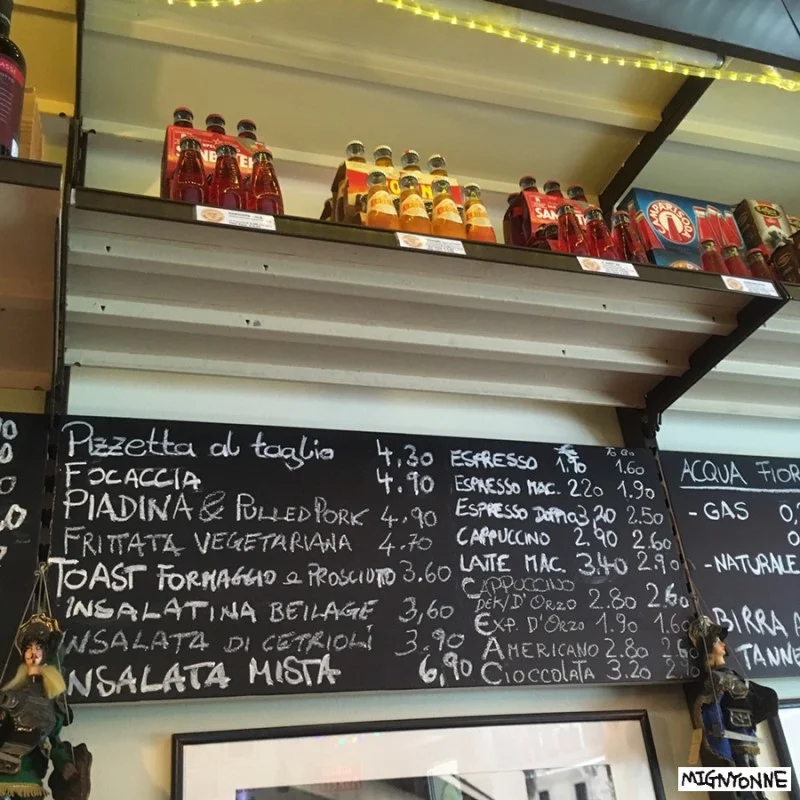 SAN
CAMPARISODA
Pizzetta al taglio 4.30
FOCACCIA 4.90
PIADINA & PULLED PORK 4.90
FRITTATA VEGETARIANA 4.70
TOAST FORMAGGIO e PROSCIUTO 3.60
INSALATINA BEILAGE 3,60
INSALATA DI CETRIOLI 3.90
INSALATA MISTA 6,90
€ TO GO
ESPRESSO 1.90 1.60
ESPRESSO MAC. 2.20 1.90
ESPRESSO DOPPIO 3,20 2.50
CAPPUCCINO 2.90 2.60
LATTE MAC. 3.40 2.90
CAPPUCCINO
DEK/D'ORZO 2.80 2.60
EXP. D'ORZO 1.90 1.60
AMERICANO 2.80 2.60
CIOCCOLATA 3.20 2.90
ACQUA FIOR
- GAS 0,
- NATURALE
BIRRA
TANNE
MIGNYONNE